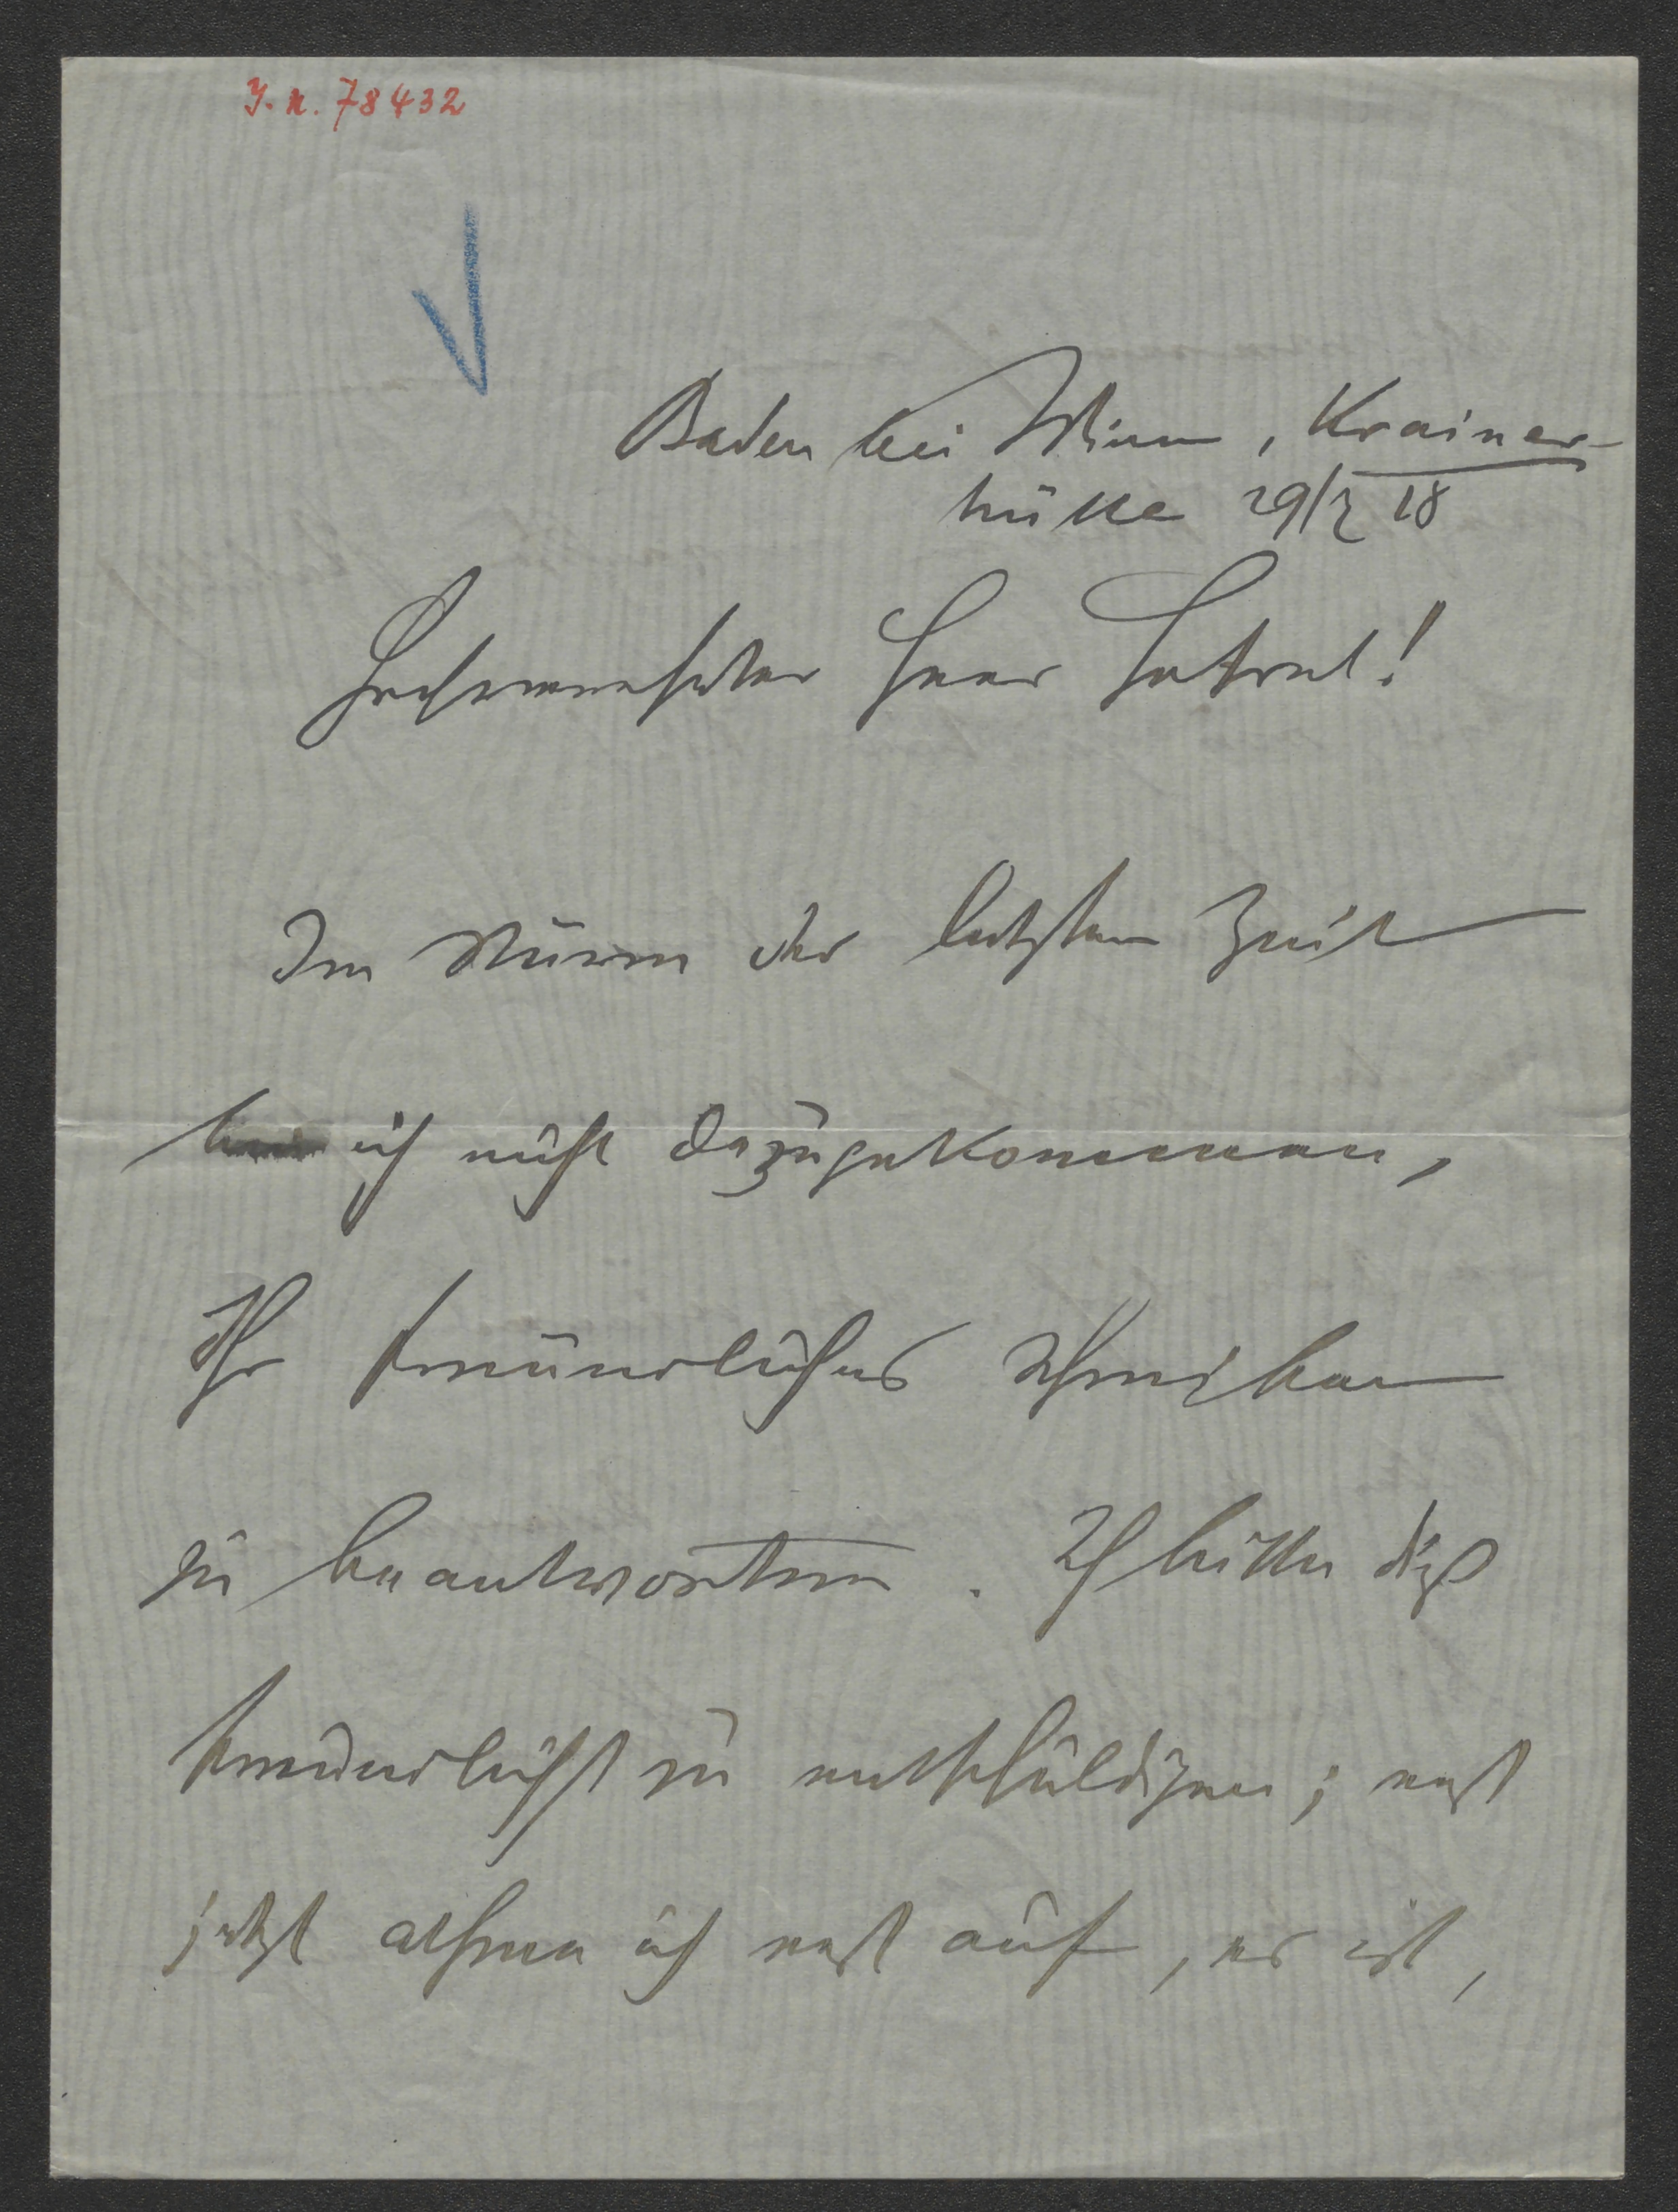 J. N. 78432
Baden bei Wien, Krainer-
hütte 29/7 18
Hochverehrter Herr Hofrat!
Im Sturm der letzten Zeit
bin ich nicht dazugekommen,
Ihr freundliches Schreiben
zu beantworten. Ich bitte dieß
freundlichst zu entschuldigen; erst
jetzt athme ich erst auf, es ist,